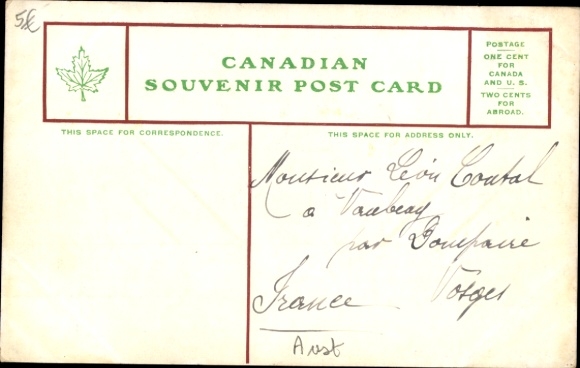 CANADIAN
SOUVENIR POST CARD
POSTAGE
ONE CENT
FOR
CANADA
AND U. S.
TWO CENTS
FOR
ABROAD.
THIS SPACE FOR CORRESPONDENCE.
THIS SPACE FOR ADDRESS ONLY.
Monsieur Léon
à
par Dompaire
Vosges
France